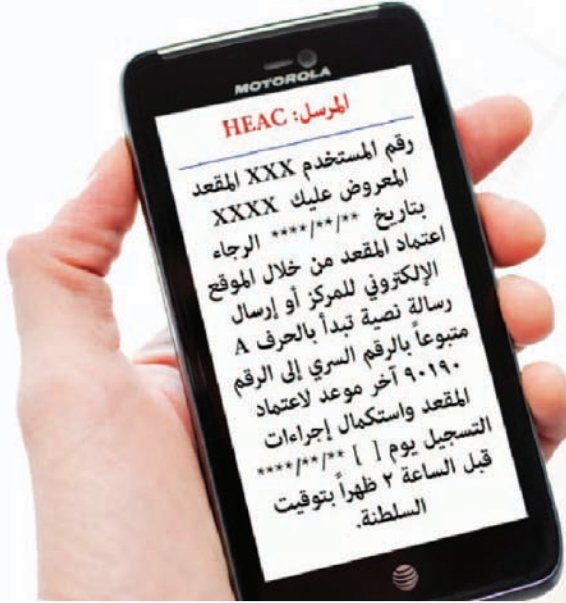 MOTOROLA
المرسل: HEAC
رقم المستخدم XXX المقعد
المعروض عليك XXXX
بتاريخ **/**/**** الرجاء
اعتماد المقعد من خلال الموقع
الإلكتروني للمركز أو إرسال
رسالة نصية تبدأ بالحرف A
متبوعاً بالرقم السري إلى الرقم
٩٠١٩٠ آخر موعد لاعتماد
المقعد واستكمال إجراءات
التسجيل يوم [ ] **/**/****
قبل الساعة ٢ ظهراً بتوقيت
السلطنة.